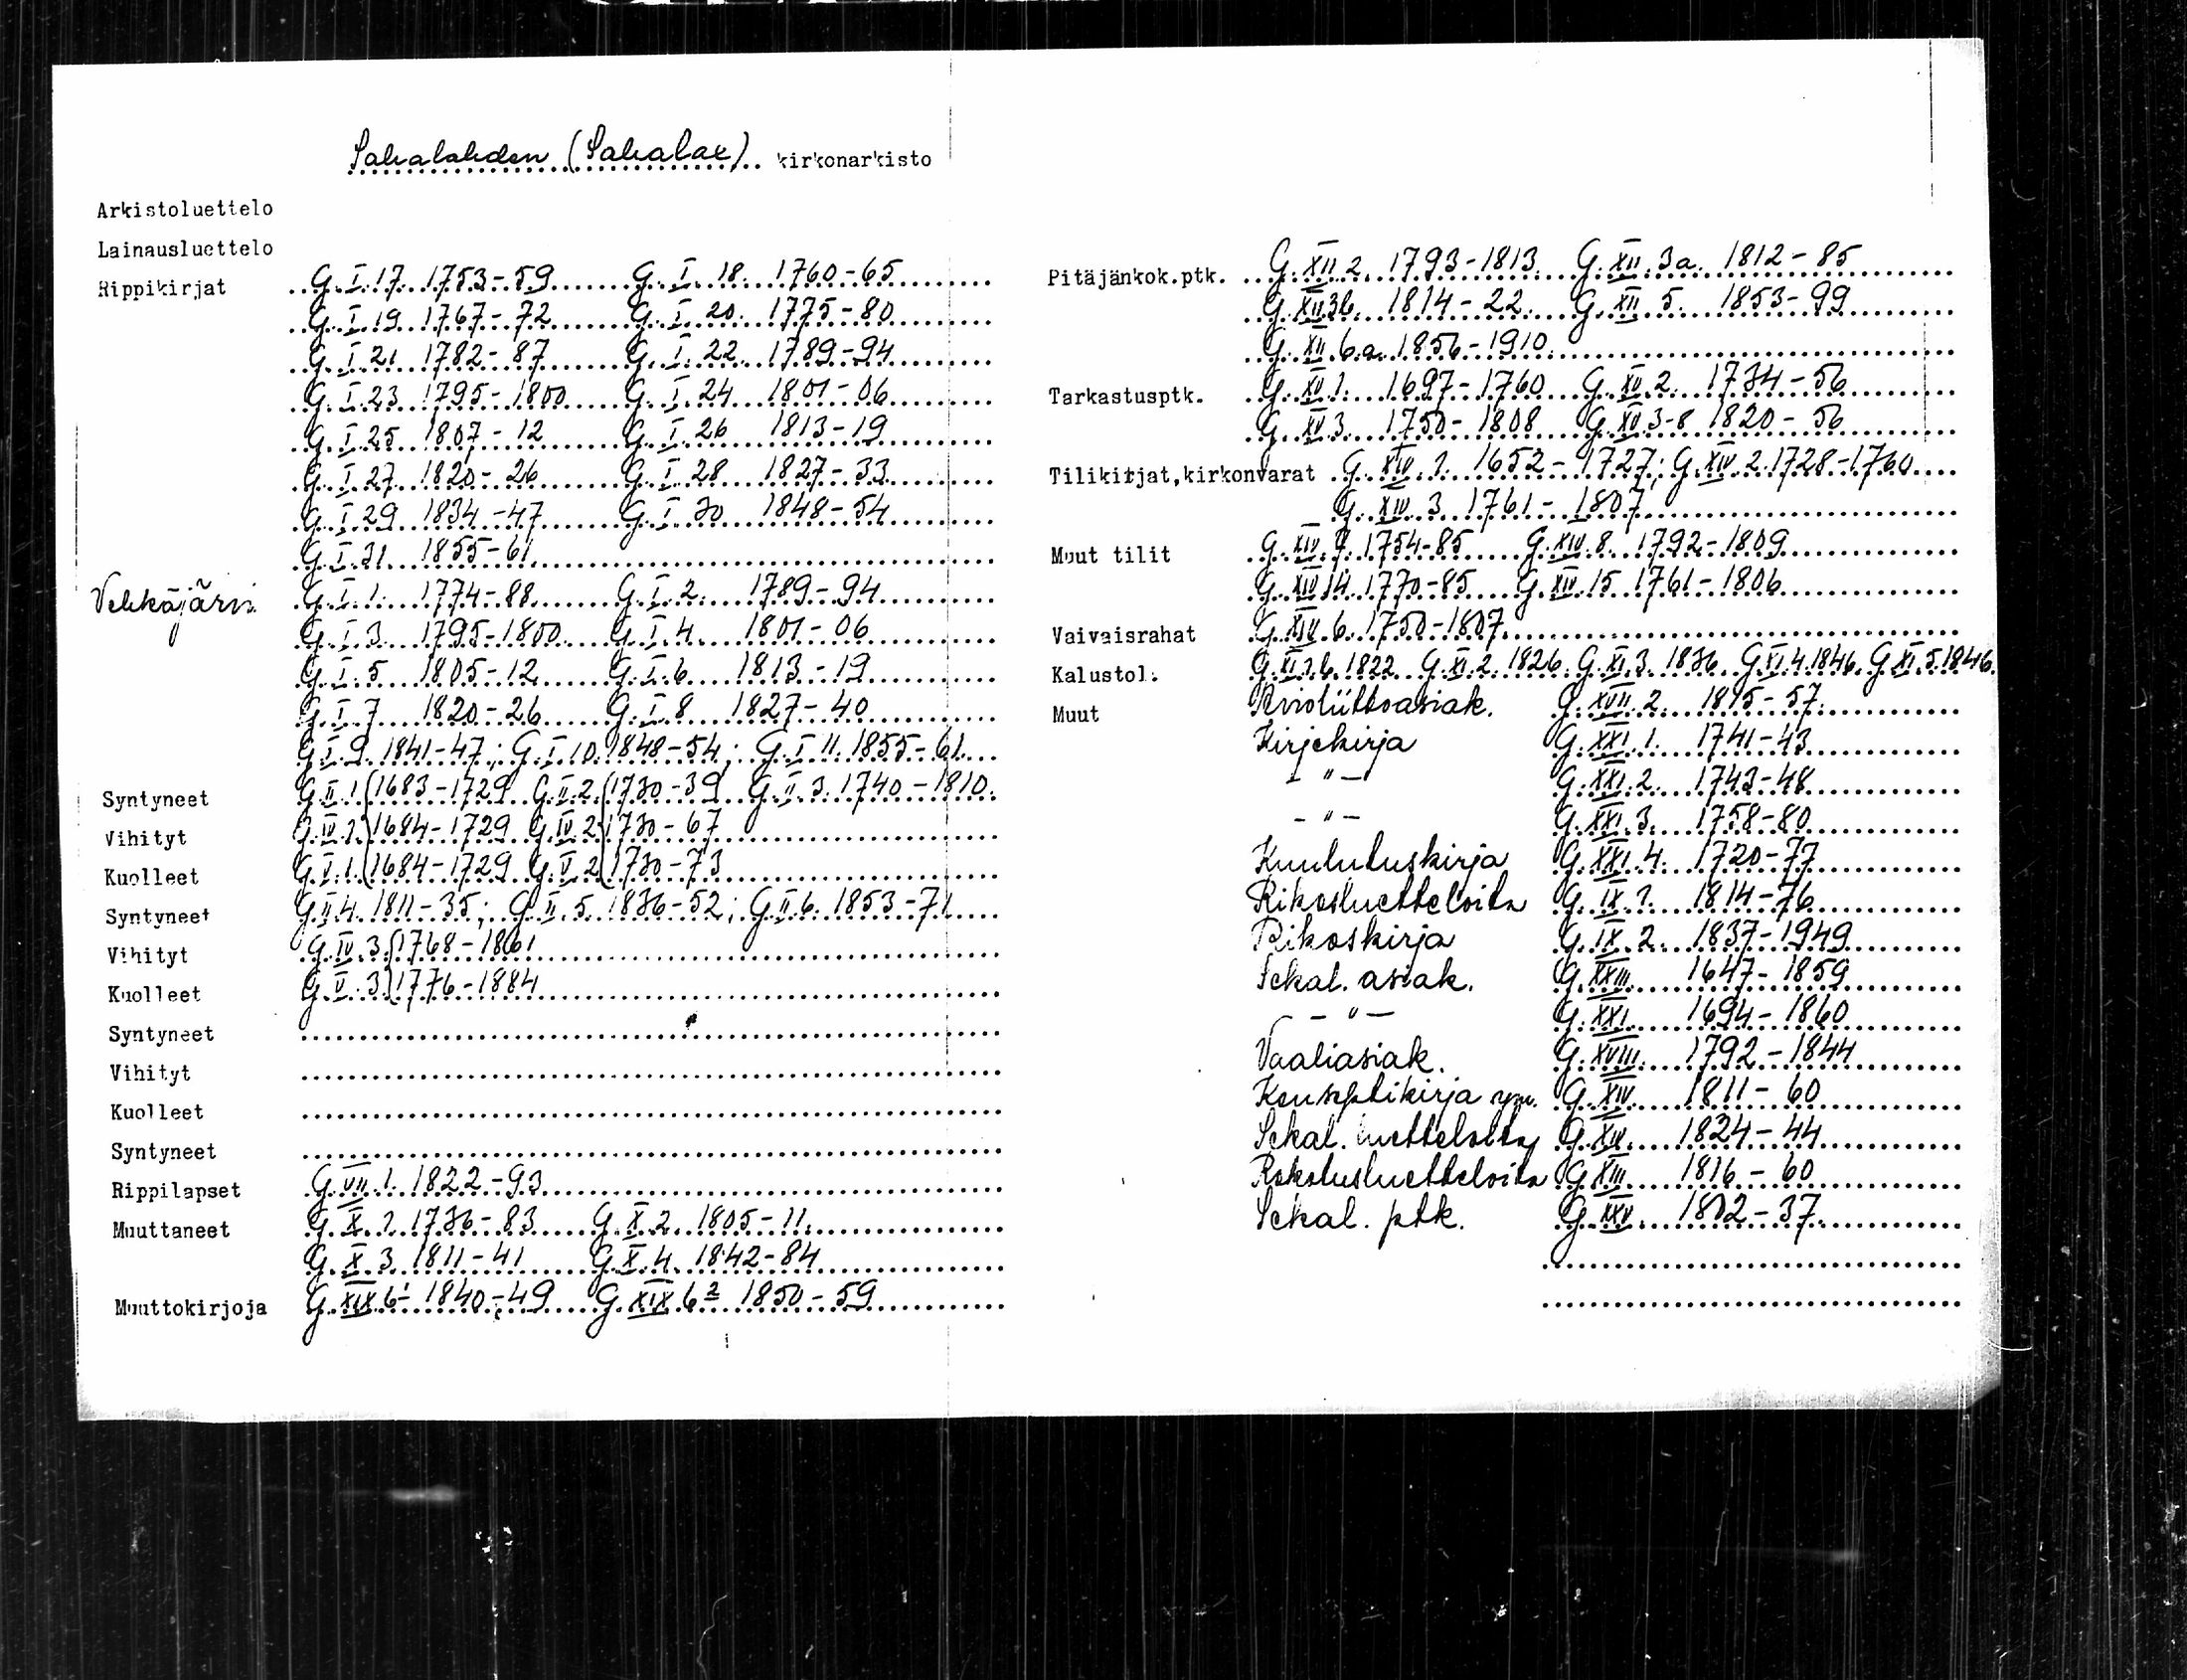 Sahalahden (Sahalax) kirkonarkisto
Arkistoluettelo
Lainausluettelo
Rippikirjat G. I. 17. 1753-59 G. I. 18. 1760-65
G. I. 19 1767-72 G. I. 20. 1775-80
G. I. 21 1782-87 G. I. 22. 1789-94
G. I. 23 1795-1800 G. I. 24 1801-06
G. I. 25 1807-12 G. I. 26 1813-19
G. I. 27 1820-26 G. I. 28 1827-33
G. I. 29 1834-47 G. I. 30 1848-54
G. I. 31 1855-61
Vehkäjärvi G. I. 1. 1774-88 G. I. 2. 1789-94
G. I. 3. 1795-1800 G. I. 4. 1801-06
G. I. 5 1805-12 G. I. 6 1813-19
G. I. 7 1820-26 G. I. 8 1827-40
G. I. 9. 1841-47; G. I. 10. 1848-54; G. I. 11. 1855-61
Syntyneet G. II. 1. (1683-1729 G. II. 2. (1730-39 G. II. 3. 1740-1810.
Vihityt G. IV. 1. 1684-1729 G. IV. 2 1730-67
Kuolleet G. V. 1. (1684-1729 G. V. 2 (1730-73
Syntyneet G. II. 4. 1811-35; G. II. 5. 1836-52; G. II. 6. 1853-71
Vihityt G. IV. 3. 1768-1861
Kuolleet G. V. 3. 1776-1884
Syntyneet
Vihityt
Kuolleet
Syntyneet
Rippilapset G. VII. 1. 1822-93
Muuttaneet G. X. 1. 1736-83 G. X. 2. 1805-11.
G. X. 3. 1811-41 G. X. 4. 1842-84
Muuttokirjoja G. XIX. 6¹ 1840-49 G. XIX. 6² 1850-59
Pitäjänkok.ptk. G. XII. 2. 1793-1813. G. XII. 3a. 1812-85
G. XII. 3b. 1814-22. G. XII. 5. 1853-99
G. XII. 6.a. 1856-1910.
Tarkastusptk. G. XV. 1. 1697-1760 G. XV. 2. 1734-56
G. XV. 3. 1750-1808 G. XV. 3-8 1820-56
Tilikirjat,kirkonvarat G. XIV. 1. 1652-1727; G. XIV. 2. 1728-1760
G. XIV. 3. 1761-1807
Muut tilit G. XIV. 7. 1754-85 G. XIV. 8. 1792-1809
G. XIV. 14. 1770-85 G. XIV. 15 1761-1806
Vaivaisrahat G. XIV. 6. 1750-1807
Kalustol. G. XI. 1.b. 1822 G. XI. 2. 1826. G. XI. 3. 1836. G. XI. 4. 1846. G. XI. 5. 1846.
Muut Avioliittoasiak. G. XVII. 2. 1815-57.
Kirjekirja G. XXI. 1. 1741-43
- " - G. XXI. 2. 1743-48
- " - G. XXI. 3. 1758-80
Kuulutuskirja G. XXI. 4. 1720-77
Rikosluetteloita G. IX. 1. 1814-76
Rikoskirja G. IX. 2. 1837-1949
Sekal. asiak. G. XXIII. 1647-1859
- " - G. XXI. 1694-1860
Vaaliasiak. G. XVIII. 1792-1844
Konseptikirja ym. G. XIV. 1811-60
Sekal. luetteloita G. XIV. 1824-44
Rokotusluetteloita G. XIII. 1816-60
Sekal. ptk. G. XXV. 1802-37.